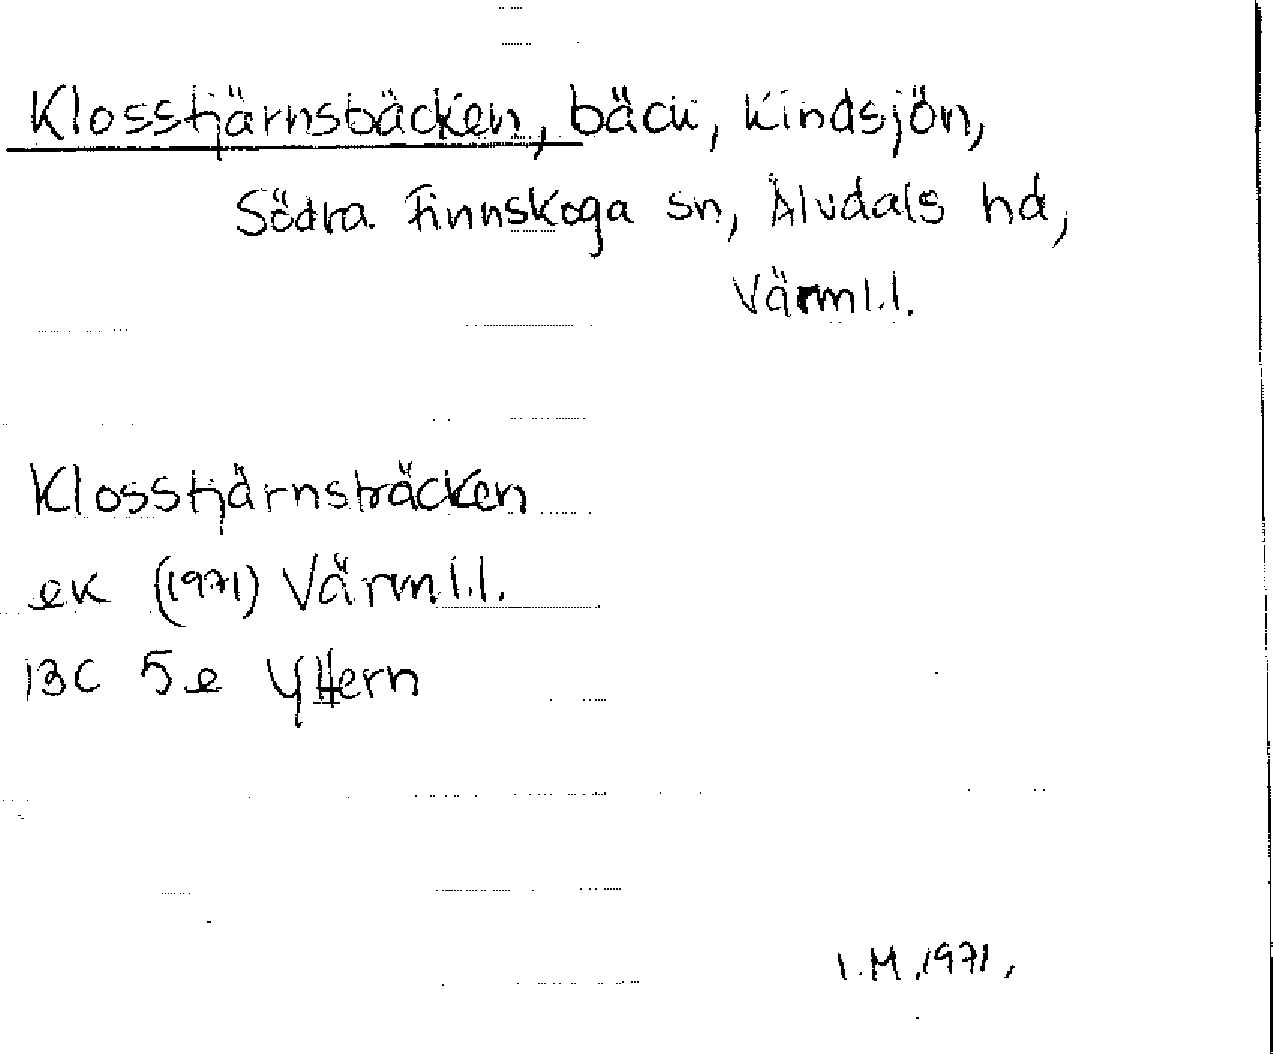 Klosstjärnsbäcken, bäck, Kindsjön,
Södra Finnskoga sn, Älvdals hd,
Värml.l.
Klosstjärnsbäcken
ek (1971) Värml.l.
13C 5e Yttern
I.M.1971.